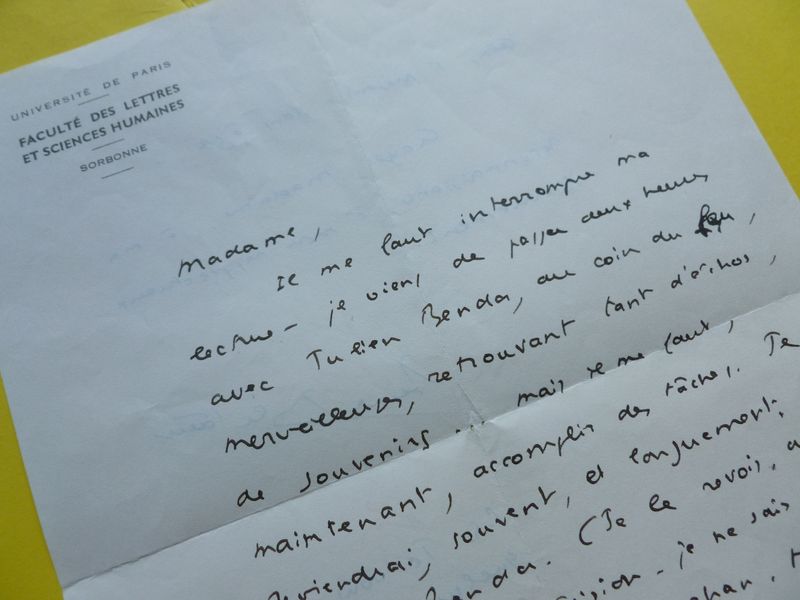 UNIVERSITÉ DE PARIS
FACULTÉ DES LETTRES
ET SCIENCES HUMAINES
SORBONNE
Madame,
Il me faut interrompre ma
lecture – je viens de passer deux heures
avec Julien Benda, au coin du feu,
merveilleuses, retrouvant tant d'échos,
de souvenirs... mais il me faut,
maintenant, accomplir des tâches. Je
reviendrai, souvent, et longuement,
Benda. (Je le revois, a
je ne sais